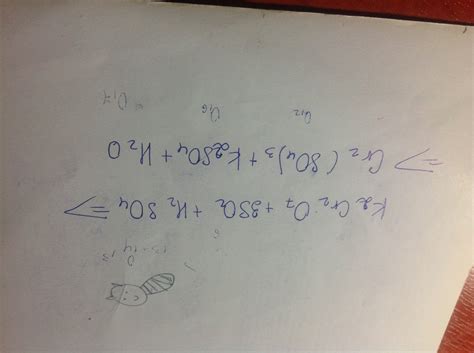 K₂Cr₂O₇ + 3SO₂ + H₂SO₄ ⇒
⇒ Cr₂(SO₄)₃ + K₂SO₄ + H₂O